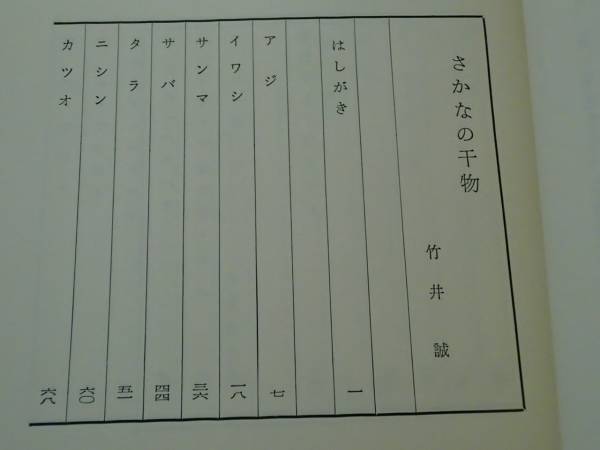 さかなの干物
竹井誠
はしがき 一
アジ 七
イワシ 一八
サンマ 三六
サバ 四四
タラ 五一
ニシン 六〇
カツオ 六八